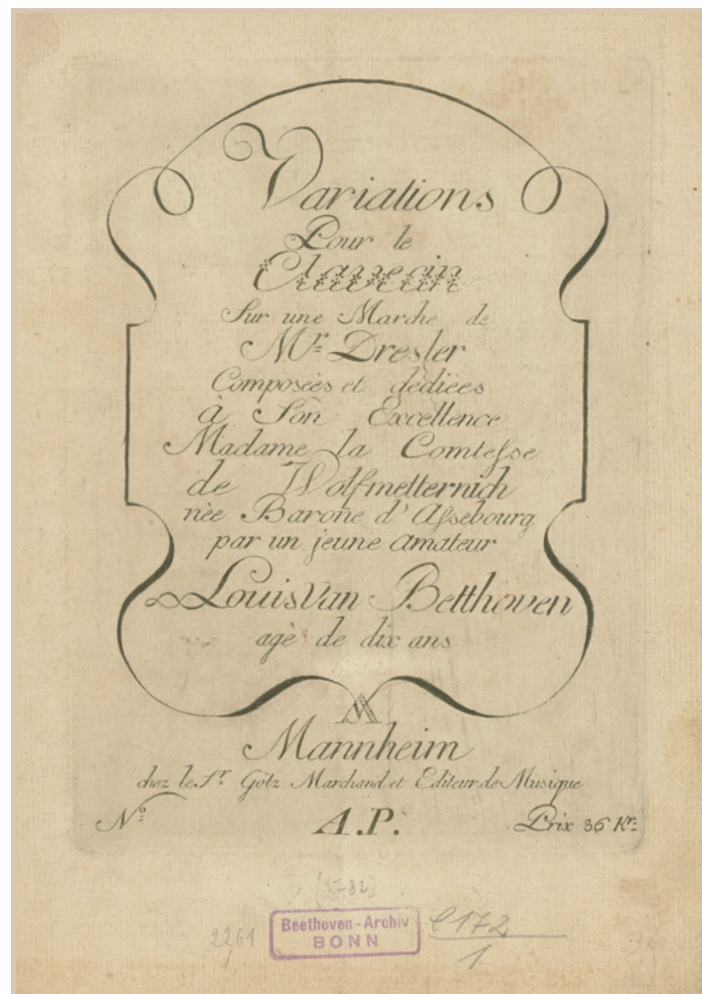 Variations
Pour le
Clavecin
Sur une Marche de
Mr. Dresler
Composèes et dèdièes
à Son Excellence
Madame la Comtesse
de Wolfmetternich
nèe Barone d'Assebourg
par un jeune amateur
Louis van Betthoven
agè de dix ans
Mannheim
chez le Sr. Götz Marchand et Editeur de Musique
No. A.P. Prix 36 Kr.
(1782)
2261
Beethoven-Archiv
BONN
C 172
1